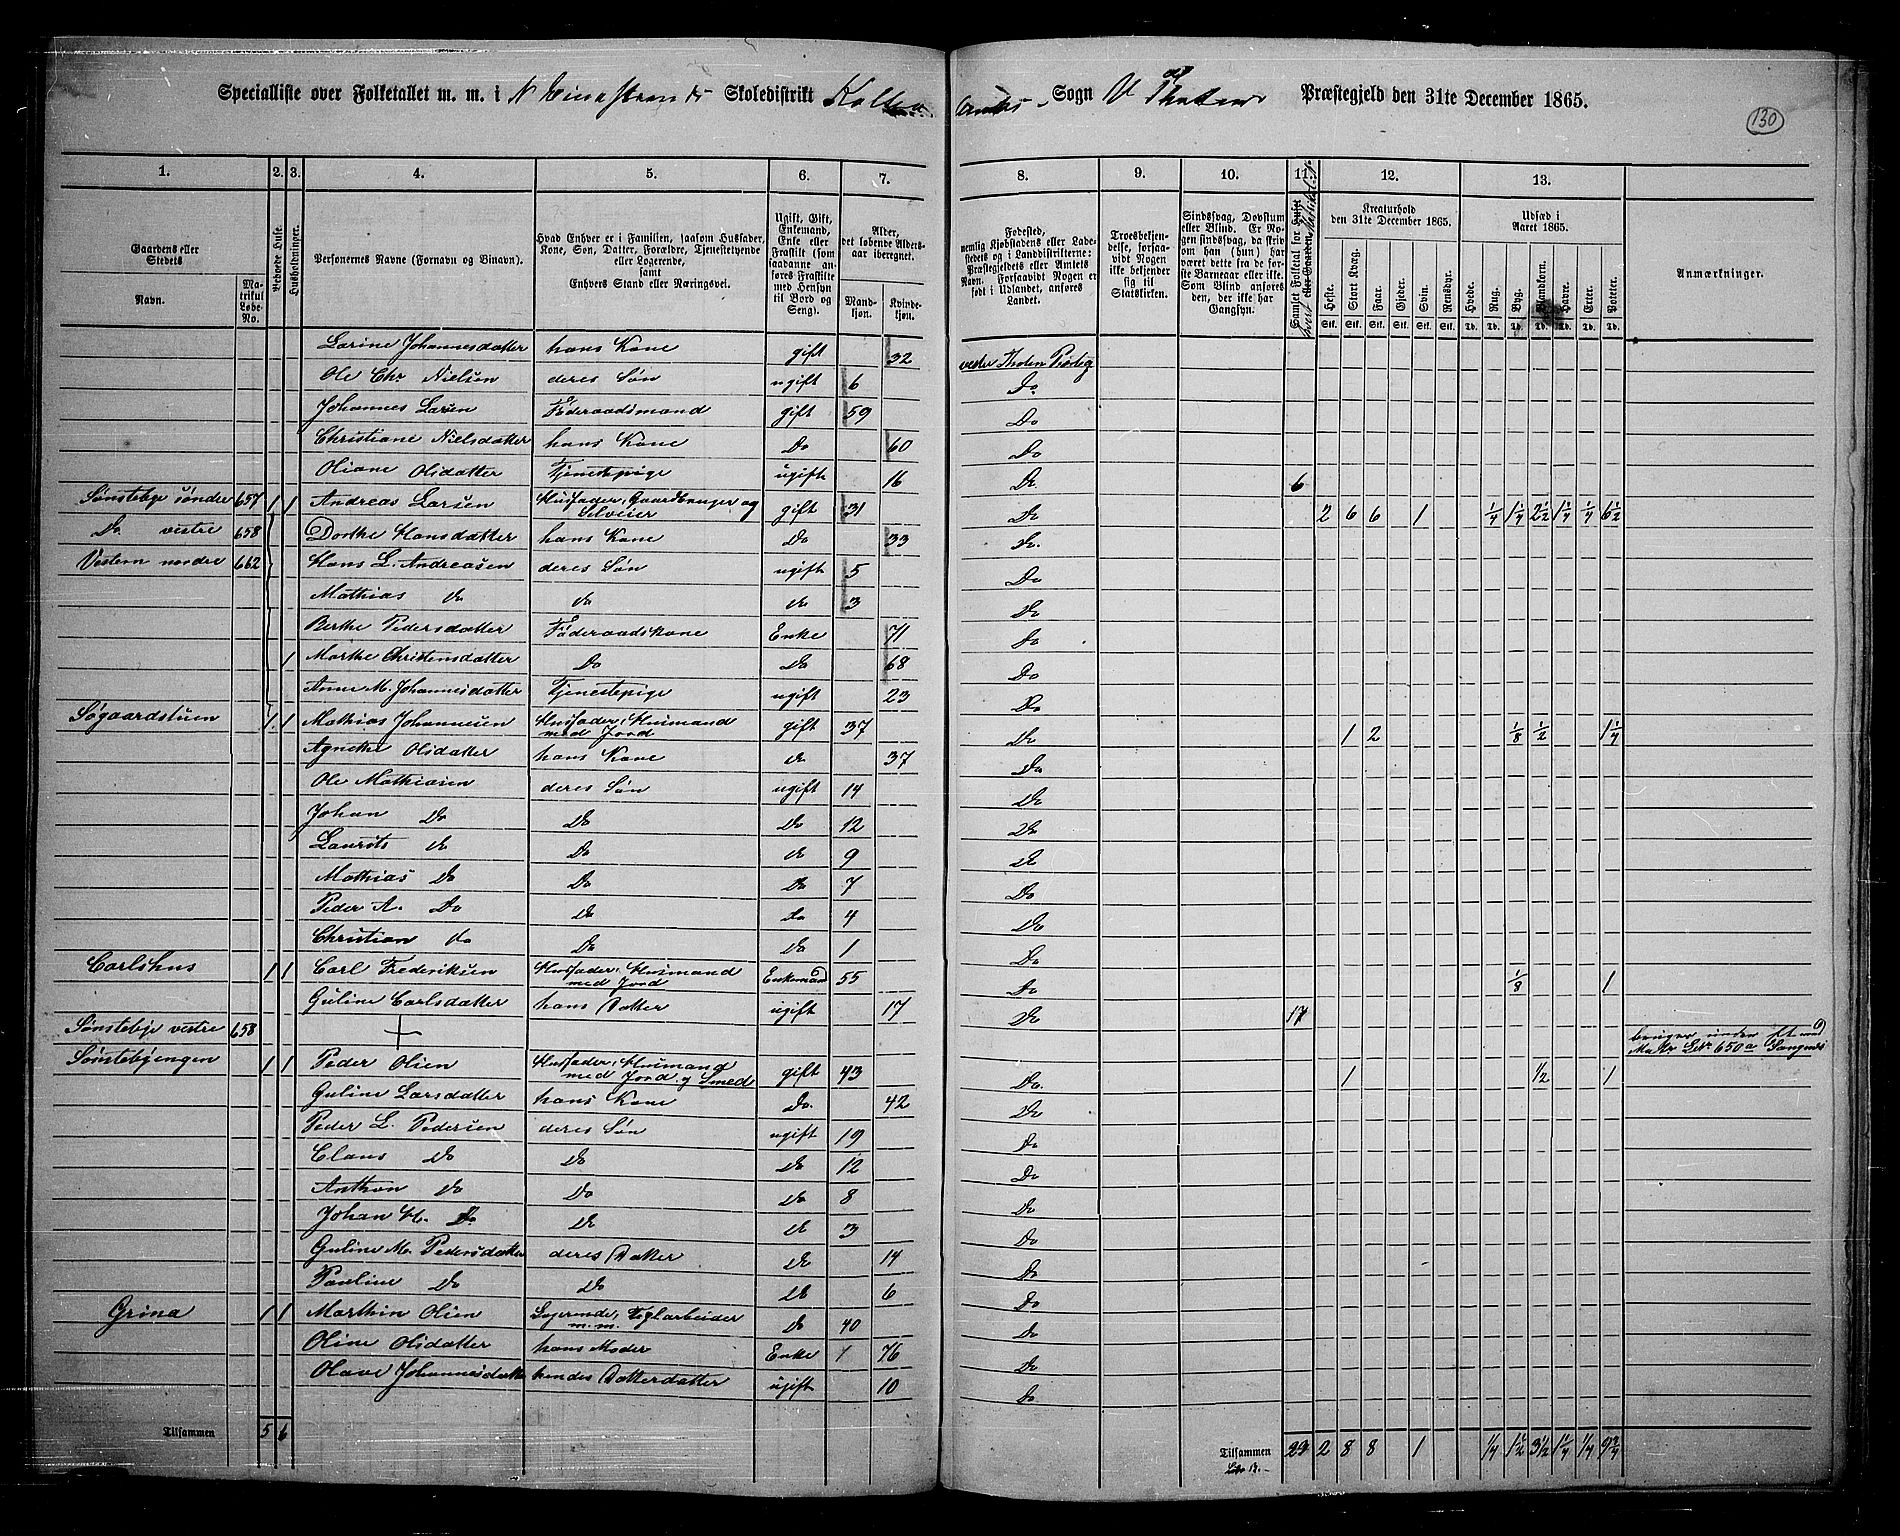 Specialliste over Folketallet m. m. i N Einastrands Skoledistrikt Kolbu Sogn V Thoten Præstegjeld den 31te December 1865.
130
1. 2. 3. 4. 5. 6. 7. 8. 9. 10. 11. 12. 13.
Gaardens eller Stedets
Navn.
Matrikul Løbe-No.
Beboede Huse.
Husholdninger.
Personernes Navne (Fornavn og Binavn).
Hvad Enhver er i Familien, saasom Husfader, Kone, Søn, Datter, Forældre, Tjenestetyende eller Logerende, samt Enhvers Stand eller Næringsvei.
Ugift, Gift, Enkemand, Enke eller Fraskilt (som saadanne anføres Fraskilte med Hensyn til Bord og Seng).
Alder, det løbende Alders-aar iberegnet.
Mandkjøn. Kvindekjøn.
Fødested, nemlig Kjøbstadens eller Ladestedets og i Landdistrikterne: Præstegjeldets eller Amtets Navn. Forsaavidt Nogen er født i Udlandet, anføres Landet.
Troesbekjendelse, forsaavidt Nogen ikke bekjender sig til Statskirken.
Sindssvag, Døvstum eller Blind. Er Nogen sindssvag, da skriv om han (hun) har været dette fra de første Barneaar eller ikke. Som Blind ansøres den, der ikke har Gangsyn.
Samlet Folketal for
Kreaturhold den 31te December 1865.
Heste. Stort Kvæg. Faar. Gjeder. Svin. Rensdyr.
Udsæd i Aaret 1865.
Hvede. Rug. Byg. Blandkorn. Havre. Erter. Poteter.
Anmærkninger.
Larine Johannesdatter hans Kone gift 32 vester Thoten Præsteg
Ole Chr Nielsen deres Søn ugift 6 Do
Johannes Larsen Føderaadsmand gift 59 Do
Christiane Nielsdatter hans Kone Do 60 Do
Oliane Olsdatter Tjenestepige ugift 16 Do 6
Sønsteby søndre 657 1 1 Andreas Larsen Husfader, Gaardbruger og Selveier gift 31 Do 2 6 6 1 1/4 1 1/4 2 1/2 1 1/4 1/4 6 1/2
Do vestre 658 Dorthe Hansdatter hans Kone Do 33 Do
Vestern nordre 662 Hans L. Andreasen deres Søn ugift 5 Do
Mathias do do do 3 Do
Berthe Pedersdatter Føderaadskone Enke 71 Do
1 Marthe Christensdatter Do Do 68 Do
Anne M. Johannesdatter Tjenestepige ugift 23 Do
Søgaardstuen 1 1 Mathias Johannesen Husfader, Husmand med Jord gift 37 Do 1 2 1/8 1/2 1 1/4
Agnethe Olsdatter hans Kone do 37 Do
Ole Mathiasen deres Søn ugift 14 Do
Johan Do Do Do 12 Do
Laurits do Do do 9 Do
Mathias Do Do Do 7 Do
Peder A. Do Do Do 4 Do
Christian do Do do 1 Do
Carlshus 1 1 Carl Frederiksen Husfader, Husmand med Jord Enkemand 55 Do 1/8 1
Guline Carlsdatter hans Datter ugift 17 Do 17
Sønsteby vestre 658 + bruges under Et med Matr LNr 650a Sangnæs
Sønstebyengen 1 1 Peder Olsen Husfader, Husmand med Jord og Smed gift 43 Do 1 1/2 1
Guline Larsdatter hans Kone Do. 42 Do
Peder L. Pedersen deres Søn ugift 19 Do
Claus Do Do Do 12 Do
Anthon Do Do Do 8 Do
Johan H. Do Do do 3 Do
Guline M. Pedersdatter deres Datter do 14 Do
Pauline Do Do do 6 Do
Grina 1 1 Marthin Olsen Logerende, Teglarbeider m.m. Do 40 Do
Oline Olsdatter hans Moder Enke 76 Do
Olave Johannesdatter hendes Datterdatter ugift 10 Do
Tilsammen 5 6
Tilsammen 23 2 8 8 1 1/4 1 1/2 3 1/2 1 1/4 1/4 9 3/4